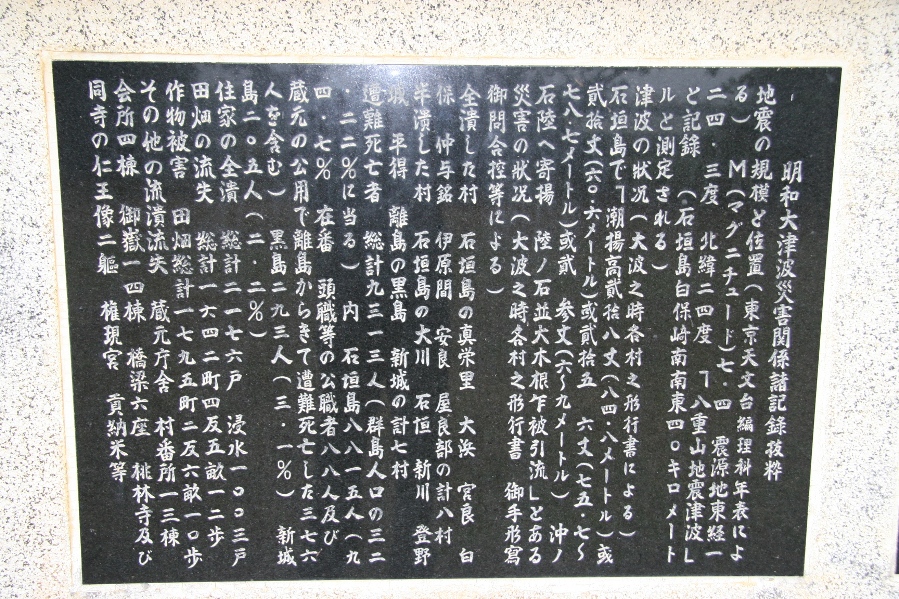 明和大津波災害関係諸記録抜粋
地震の規模と位置(東京天文台編理科年表によ
る) M(マグニチュード)七・四 震源地東経一
二四・三度 北緯二四度 「八重山地震津波」
と記録 (石垣島白保崎南南東四〇キロメート
ルと測定される)
津波の状況(大波之時各村之形行書による)
石垣島で「潮揚高貳拾八丈(八四・八メートル)或
貳拾丈(六〇・六メートル)或貳拾五 六丈(七五・七〜
七八・七メートル)或貳 参丈(六〜九メートル) 沖ノ
石陸へ寄揚 陸ノ石並大木根乍被引流」とある
災害の状況(大波之時各村之形行書 御手形寫
御問合控等による)
全潰した村 石垣島の真栄里 大浜 宮良 白
保 仲与銘 伊原間 安良 屋良部の計八村
半潰した村 石垣島の大川 石垣 新川 登野
城 平得 離島の黒島 新城の計七村
遭難死亡者 総計九三一三人(群島人口の三二
・二二%に当る) 内 石垣島八八一五人(九
四・七% 在番 頭職等の公職者八八人及び
蔵元の公用で離島からきて遭難死亡した三七六
人を含む) 黒島二九三人(三・一%) 新城
島二〇五人(二・二%)
住家の全潰 総計二一七六戸 浸水一〇〇三戸
田畑の流失 総計一六四二町四反五畝一二歩
作物被害 田畑総計一七九五町二反六畝一〇歩
その他の流潰流失 蔵元庁舎 村番所一三棟
会所四棟 御嶽一四棟 橋梁六座 桃林寺及び
同寺の仁王像二軀 権現宮 貢納米等